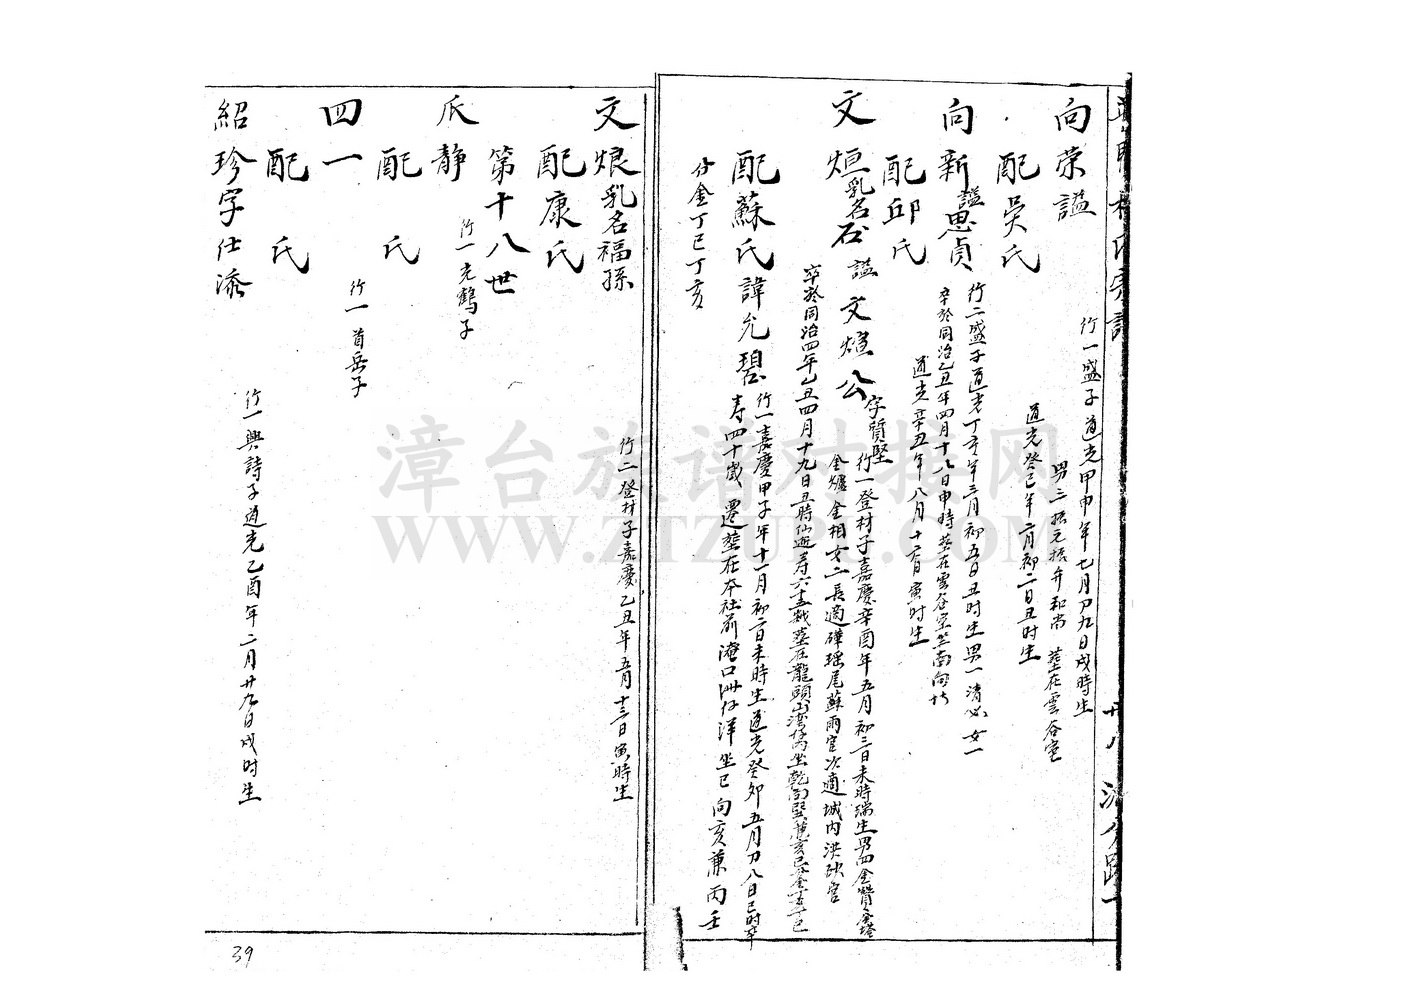 向荣謚
行一盛子道光甲申年七月初九日戌時生
男三振元振弁和尚 塟在雲谷室
配吳氏
道光癸巳年二月初二日丑时生
向新謚思貞
行二盛子道光丁亥年三月初五日丑时生男一清必女一
卒於同治乙丑年四月十八日申時塟在雲谷室
配邱氏
道光辛丑年八月十六日寅时生
文烜乳名石謚文煊公
字質堅
行一登材子嘉慶辛酉年五月初三日未時瑞生男四金贊金塔
金爐金相女二長適磚瑤尾蘇雨官次適城內洪
卒於同治四年乙丑四月十九日丑時仙遊寿六十五歲塟在龍頭山湾仔内坐乾向巽
配蘇氏諱允碧
行一嘉慶甲子年十一月初二日未時生道光癸卯五月初八日巳时卒
寿四十歲 遷塟在本社前淹口洲仔洋坐巳向亥兼丙壬
分金丁巳丁亥
文烺乳名福孫
行二登材子嘉慶乙丑年五月十三日寅時生
配康氏
第十八世
爪静
行一光鶴子
配 氏
四一
行一首岳子
配 氏
紹珍字仕添
行一興詩子道光乙酉年二月廿九日戌时生
39
漳台族谱对接网
WWW.ZTZUPU.COM